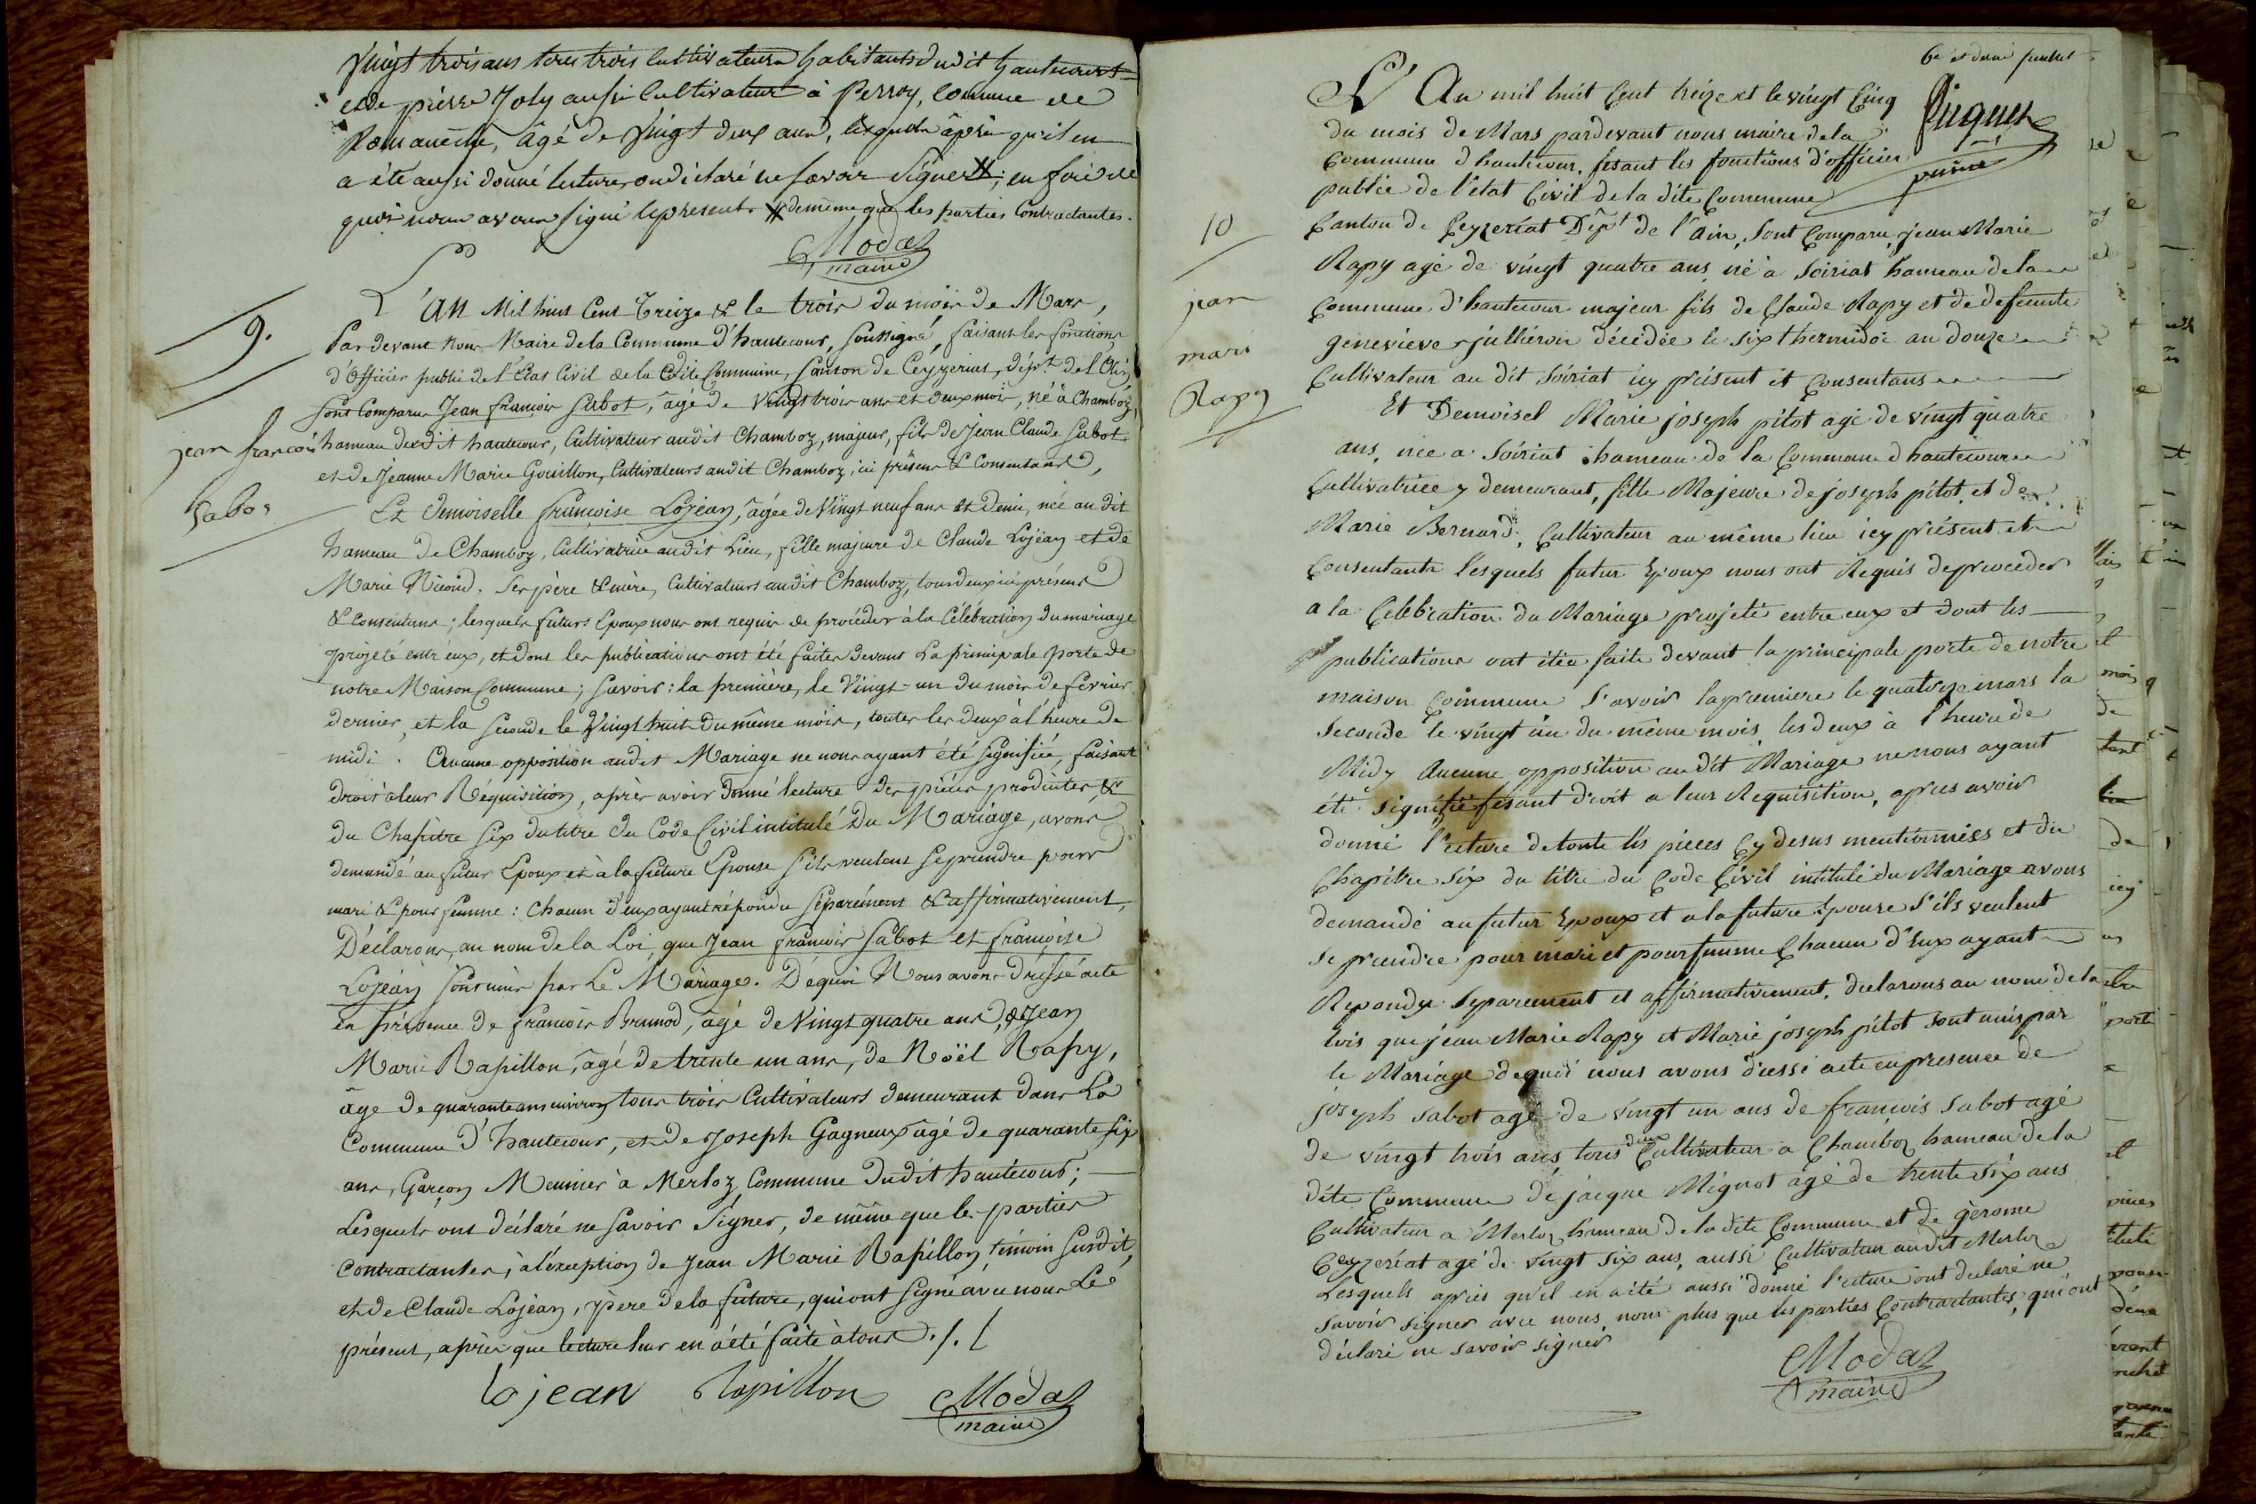 Vingt trois ans tous trois Cultivateurs habitants dudit hautecourt
et de pierre Joly aussi Cultivateur à Perroy, Commune de
Romanêche, âgé de Vingt deux ans, lesquels après qu'il en
a été aussi donné lecture, ont déclaré ne savoir Signer #; en foi de
quoi nous avons signé le présent. # de même que les parties Contractantes.
Modas
maire
9.
jean francois
Sabot
L'an Mil huit Cent Treize & le trois du mois de Mars,
Par devant Nous Maire de la Commune d'hautecour, Soussigné, faisant les fonctions
d'Officier public de l'Etat Civil de la dite Commune, Canton de Ceyzeriat, Dép.t de l'Ain,
Sont Comparus Jean francois Sabot, âgé de Vingt trois ans et deux mois, né à Chamboz,
hameau dudit hautecour, Cultivateur audit Chamboz, majeur, fils de Jean Claude Sabot
et de Jeanne Marie Goüillon, Cultivateurs audit Chamboz, ici présens & Consentans,
Et Demoiselle françoise Lojean, âgée de Vingt neuf ans et demi, née audit
hameau de Chamboz, Cultivatrice audit Lieu, fille majeure de Claude Lojean et de
Marie Nicoud, Ses père & mère, Cultivateurs audit Chamboz, tous deux ici présens
& Consentans; lesquels futurs Epoux nous ont requis de procéder à la Célébration du mariage
projeté entr'eux, et dont les publications ont été faites devant La principale porte de
notre Maison Commune; Savoir: la première, le Vingt-un du mois de février
dernier, et la seconde le Vingt huit du même mois, toutes les deux à l'heure de
midi. Aucune opposition audit Mariage ne nous ayant été signifiée, faisant
droit à leur Réquisition, après avoir Donné lecture des pièces produites, &
du Chapitre Six du titre du Code Civil intitulé Du Mariage, avons
demandé au futur Epoux et à la future Epouse s'ils veulent se prendre pour
mari & pour femme: Chacun d'eux ayant répondu séparément & affirmativement,
Déclarons, au nom de la Loi, que Jean francois Sabot et françoise
Lojean sont unis par Le Mariage. De quoi Nous avons dressé acte
en présence de francois Brunod, âgé de Vingt quatre ans, de Jean
Marie Rapillon, âgé de trente un ans, de Noël Rapy,
âgé de quarante ans environ tous trois Cultivateurs demeurant dans La
Commune d'hautecour, et de Joseph Gagneux âgé de quarante six
ans, Garçon Meunier à Merloz Commune dudit hautecour;
Lesquels ont déclaré ne savoir signer, de même que les parties
contractantes, à l'exception de Jean Marie Rapillon, témoin susdit,
et de Claude Lojean, père de la future, qui ont signé avec nous Le
présent, après que lecture leur en a été faite à tous ./.
Lojean Rapillon Modas
maire
6e et feuillet
L'An mil huit Cent treize et le vingt Cinq
du mois de Mars pardevant nous maire de la
Commune d'hautecour, fesant les fonctions d'officier
public de l'état Civil de la dite Commune
10
jean
mari
Rapy
Canton de Ceyzeriat Dép.t de l'ain, Sont Comparu, jean Marie
Rapy agé de vingt quatre ans né à Soiriat hameau de la
Commune d'hautecour majeur fils de Claude Rapy et de defeunte
genevieve décédée le six thermidor an douze
Cultivateur au dit Soiriat icy présent et Consentans
Et Demoisel Marie joseph pitot agé de vingt quatre
ans, née a Soiriat hameau de la Commune d hautecour
Cultivatrice y demeurant, fille Majeure de joseph pitot, et de
Marie Bernard, Cultivateur au même lieu icy présent et
Consentants lesquels futur Epoux nous ont Requis de proceder
a la Celebration du Mariage projeté entre eux et dont les
publications ont étée faite devant la principale porte de notre
maison Commune S'avoir la premiere le quatorze mars la
Seconde le vingt un du même mois les deux à l'heure de
Midy Aucune opposition audit Mariage ne nous ayant
été signifié fesant droit a leur Requisition, apres avoir
donné l'ecture de toute les pieces Cy desus mentionnées et du
Chapitre Six du titre du Code Civil intitulé du Mariage avons
demandé au futur Epoux et a la future Epouse S'ils veulent
se prendre pour mari et pour femme Chacun d'Eux ayant
Repondu Separement et affirmativement, declarons au nom de la
lois que jean Marie Rapy et Marie joseph pitot sont unis par
le Mariage de quoi nous avons dressé acte en presence de
joseph sabot agé de vingt un ans de francois sabot agé
de vingt trois ans, tous deux Cultivateur a Chamboz hameau de la
dite Commune de jacque Mignot agé de trente Six ans
Cultivateur a Merloz hameau de la dite Commune et de gerome
Ceyzeriat agé de vingt Six ans, aussi Cultivateur audit Merloz
Lesquels après qu'il en a été aussi donné l'ecture ont declaré ne
savoir signer avec nous, non plus que les parties Contractantes, qui ont
déclaré ne savoir signer
Modas
maire